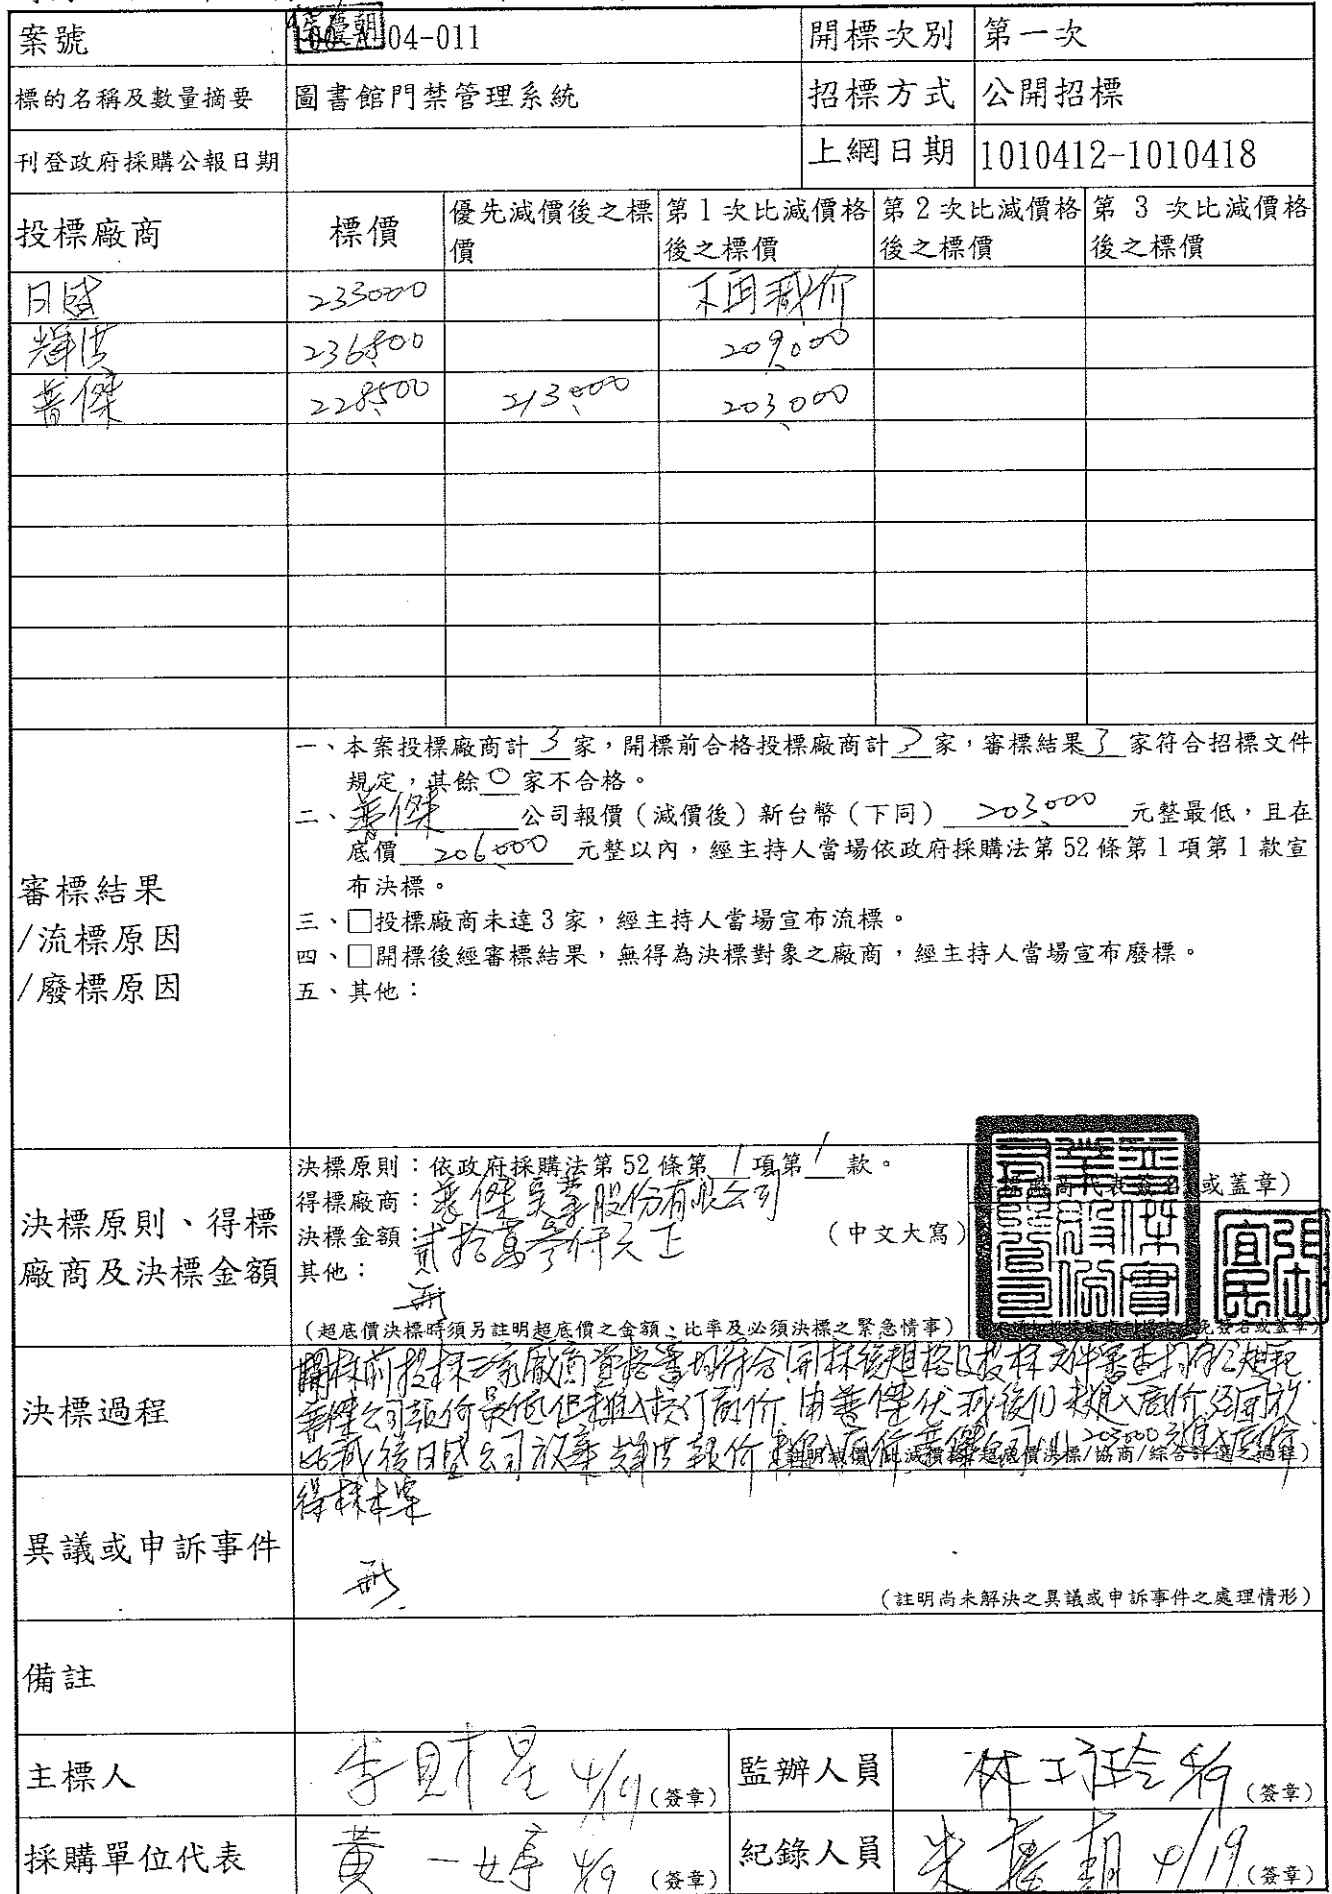 案號 04-011 開標次別 第一次
標的名稱及數量摘要 圖書館門禁管理系統 招標方式 公開招標
刊登政府採購公報日期 上網日期 1010412-1010418
投標廠商 標價 優先減價後之標價 第1次比減價格後之標價 第2次比減價格後之標價 第 3 次比減價格後之標價
日盛 233000 不再減价
輝洪 236,500 209,000
普傑 228,500 213,000 203,000
審標結果
/流標原因
/廢標原因
一、本案投標廠商計 3 家,開標前合格投標廠商計 3 家,審標結果 3 家符合招標文件
規定,其餘 0 家不合格。
二、普傑 公司報價(減價後)新台幣(下同) 203,000 元整最低,且在
底價 206,000 元整以內,經主持人當場依政府採購法第52條第1項第1款宣
布決標。
三、□投標廠商未達3家,經主持人當場宣布流標。
四、□開標後經審標結果,無得為決標對象之廠商,經主持人當場宣布廢標。
五、其他:
決標原則、得標
廠商及決標金額
決標原則:依政府採購法第52條第 1 項第 1 款。
得標廠商:普傑實業股份有限公司
決標金額:貳拾萬參仟元正 (中文大寫)
其他:
無
(超底價決標時須另註明超底價之金額、比率及必須決標之緊急情事)
或蓋章)
張宜民
決標過程
開標前投標三家廠商資格審均符合 開標後規格及投標文件審查均符合規範
普傑公司報价最低但未進入核訂底价 由普傑优减後仍未進入底价
比减後日盛公司放棄 輝洪報价未進入底价 普傑公司以203,000元進入底价
得標本案
異議或申訴事件
無
(註明尚未解決之異議或申訴事件之處理情形)
備註
主標人 李財星 4/19 (簽章) 監辦人員 4/19 (簽章)
採購單位代表 黃一婷 4/9 (簽章) 紀錄人員 4/19 (簽章)